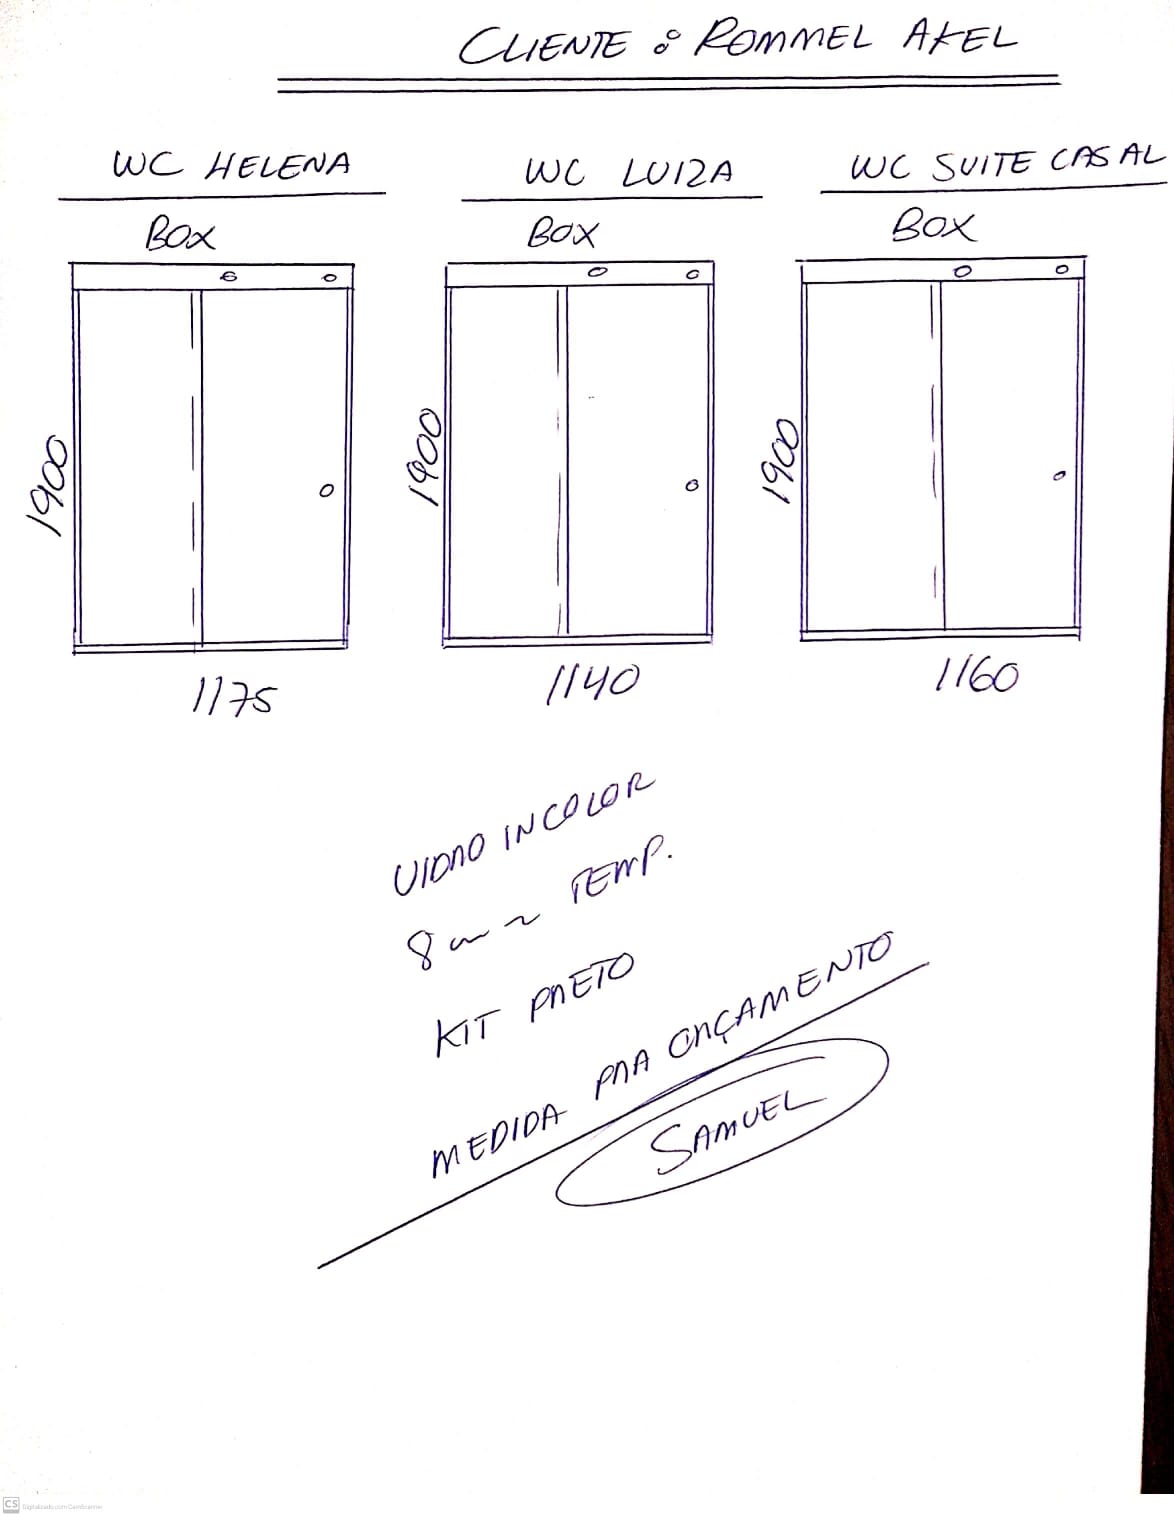 CLIENTE : ROMMEL AKEL
WC HELENA
BOX
1900
1175
WC LUIZA
BOX
1900
1140
WC SUITE CASAL
BOX
1900
1160
VIDRO INCOLOR
8mm TEMP.
KIT PRETO
MEDIDA PRA ORÇAMENTO
SAMUEL
CS Digitalizado com CamScanner